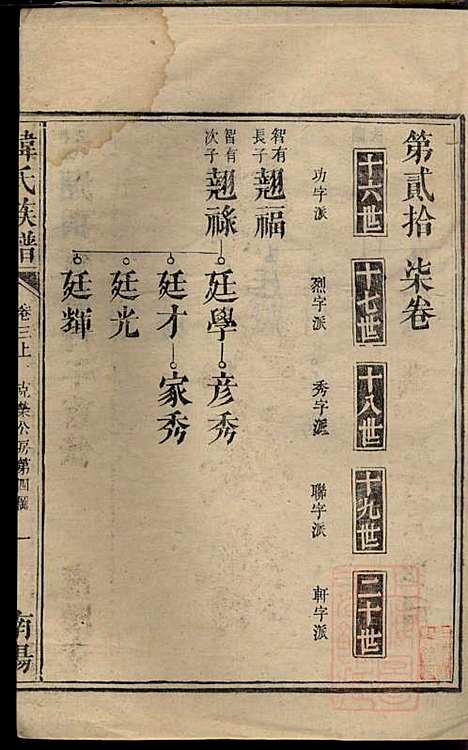 第貳拾柒卷
十六世
十七世
十八世
十九世
二十世
功字派
烈字派
秀字派
聯字派
軒字派
智有長子
翹福
智有次子
翹祿
廷學
彦秀
廷才
家秀
廷光
廷輝
韓氏族譜
卷三上
克榮公房第四
一
南陽